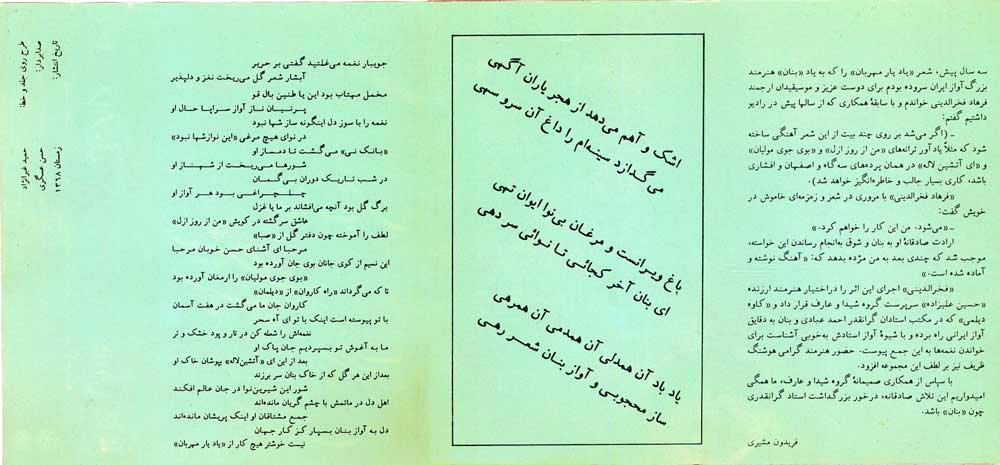 سه سال پیش، شعر «یاد یار مهربان» را که به یاد «بنان» هنرمند
بزرگ آواز ایران سروده بودم برای دوست عزیز و موسیقیدان ارجمند
فرهاد فخرالدینی خواندم و با سابقهٔ همکاری که از سالها پیش در رادیو
داشتیم گفتم:
ـ (اگر می‌شد بر روی چند بیت از این شعر آهنگی ساخته
شود که مثلاً یادآور ترانه‌های «من از روز ازل» و «بوی جوی مولیان»
و «ای آتشین لاله» در همان پرده‌های سه‌گاه و اصفهان و افشاری
باشد، کاری بسیار جالب و خاطره‌انگیز خواهد شد).
«فرهاد فخرالدینی» با مروری در شعر و زمزمه‌ای خاموش در
خویش گفت:
ـ «می‌شود، من این کار را خواهم کرد.»
ارادت صادقانهٔ او به بنان و شوق به‌انجام رساندن این خواسته،
موجب شد که چندی بعد به من مژده بدهد که: «آهنگ نوشته و
آماده شده است.»
«فخرالدینی» اجرای این اثر را دراختیار هنرمند ارزنده
«حسین علیزاده» سرپرست گروه شیدا و عارف قرار داد و «کاوه
دیلمی» که در مکتب استادان گرانقدر احمد عبادی و بنان به دقایق
آواز ایرانی راه برده و با شیوهٔ آواز استادش به‌خوبی آشناست برای
خواندن نغمه‌ها به این جمع پیوست. حضور هنرمند گرامی هوشنگ
ظریف نیز بر لطف این مجموعه افزود.
با سپاس از همکاری صمیمانهٔ گروه شیدا و عارف، ما همگی
امیدواریم این تلاش صادقانه، درخور بزرگداشت استاد گرانقدری
چون «بنان» باشد.
فریدون مشیری
اشک و آهم می‌دهد از هجر یاران آگهی
می‌گدازد سینه‌ام را داغ آن سرو سهی
باغ ویرانست و مرغان بی‌نوا ایوان تهی
ای بنان آخر کجائی تا نوائی سر دهی
یاد باد آن همدلی آن همدمی آن همرهی
ساز محجوبی و آواز بنان شعر رهی
جویبار نغمه می‌غلتید گفتی بر حریر
آبشار شعر گل می‌ریخت نغز و دلپذیر
مخمل مهتاب بود این یا طنین بال قو
پرنیان ناز آواز سراپا حال او
نغمه را با سوز دل اینگونه ساز شها نبود
در نوای هیچ مرغی «این نوازشها نبود»
«بانگ نی» می‌گشت تا دمساز او
شورها می‌ریخت از شهناز او
در شب تاریک دوران بی‌گمان
چلچراغی بود هر آواز او
برگ گل بود آنچه می‌افشاند بر ما یا غزل
عاشق سرگشته در کویش «من از روز ازل»
لطف را آموخته چون دفتر گل از «صبا»
مرحبا ای آشنای حسن خوبان مرحبا
این نسیم از کوی جانان بوی جان آورده بود
«بوی جوی مولیان» را ارمغان آورده بود
تا که می‌گرداند «راه کاروان» از «دیلمان»
کاروان جان ما می‌گشت در هفت آسمان
با تو پیوسته است اینک با تو ای آه سحر
نغمه‌اش را شعله کن در تار و پود خشک و تر
ما به آغوش تو بسپردیم جان پاک او
بعد از این ای «آتشین‌لاله» بپوشان خاک او
بعداز این هر گل که از خاک بنان سر برزند
شور این شیرین‌نوا در جان عالم افکند
اهل دل در ماتمش با چشم گریان مانده‌اند
جمع مشتاقان او اینک پریشان مانده‌اند
دل به آواز بنان بسپار کز کار جهان
نیست خوشتر هیچ کار از «یاد یار مهربان»
طرح روی جلد و خط: حمید غبرانژاد
صدابردار: حسن عسگری
تاریخ انتشار: زمستان ۱۳۶۸